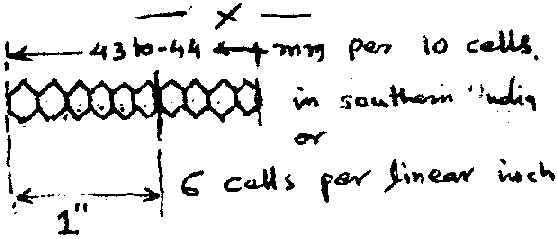 x
43 to 44 mm per 10 cells.
in southern India
or
6 cells per linear inch
1"